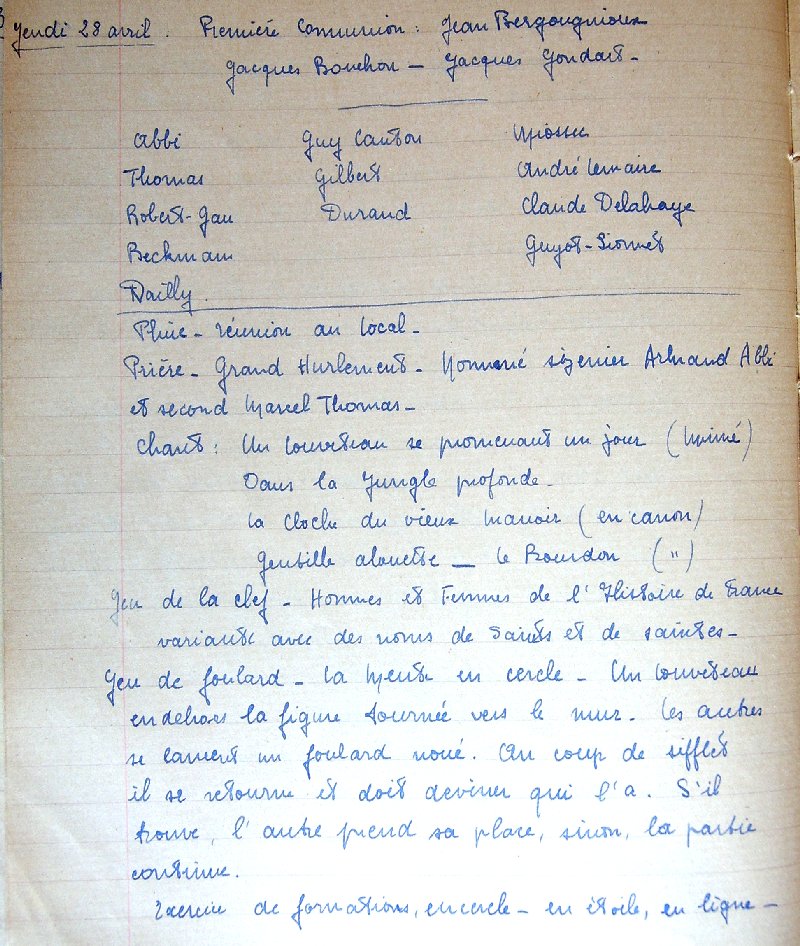 Jeudi 28 avril. Première Communion : Jean Bergougnioux
Jacques Bouchon — Jacques Gondart -
Abbi Guy Canton Miossec
Thomas Gilbert André Lemaire
Robert-Jau Durand Claude Delahaye
Beckmam Guyot-Sionnet
Dailly.
Pluie - réunion au local -
Prière - Grand Hurlement - Nommé sizenier Arhaud Abbi
et second Marcel Thomas -
Chant : Un louveteau se promenant un jour (mimé)
Dans la Jungle profonde -
La cloche du vieux manoir (en canon)
Gentille alouette — Le Bourdon (")
Jeu de la clef - Hommes et Femmes de l'Histoire de France
variante avec des noms de Saints et de saintes -
Jeu de foulard - La Meute en cercle - Un louveteau
en dehors la figure tournée vers le mur. Les autres
se lancent un foulard noué. Au coup de sifflet
il se retourne et doit deviner qui l'a. S'il
trouve, l'autre prend sa place, sinon, la partie
continue.
Exercice de formations, en cercle - en étoile, en ligne -